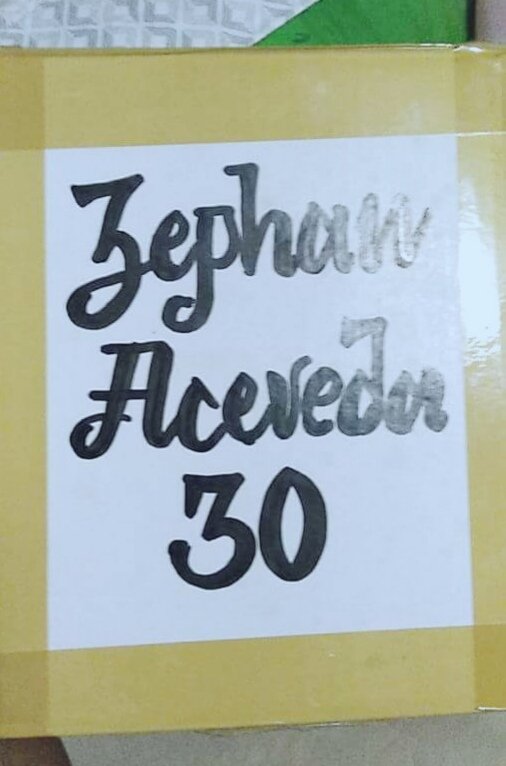 Zephan
Acevedo
30